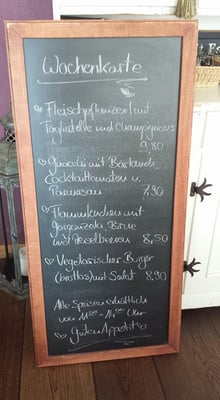 Wochenkarte
Fleischpflanzerl mit
Tagliatelle und Champignons
9,80
Gnocchi mit Bärlauch,
Cocktailtomaten u.
Parmesan 7,90
Flammkuchen mit
Gorgonzola, Birne
und Preiselbeeren 8,50
Vegetarischer Burger
(Bratlas) mit Salat 8,90
Alle Speisen erhältlich
von 11:00 - 14:00 Uhr
Guten Appetit